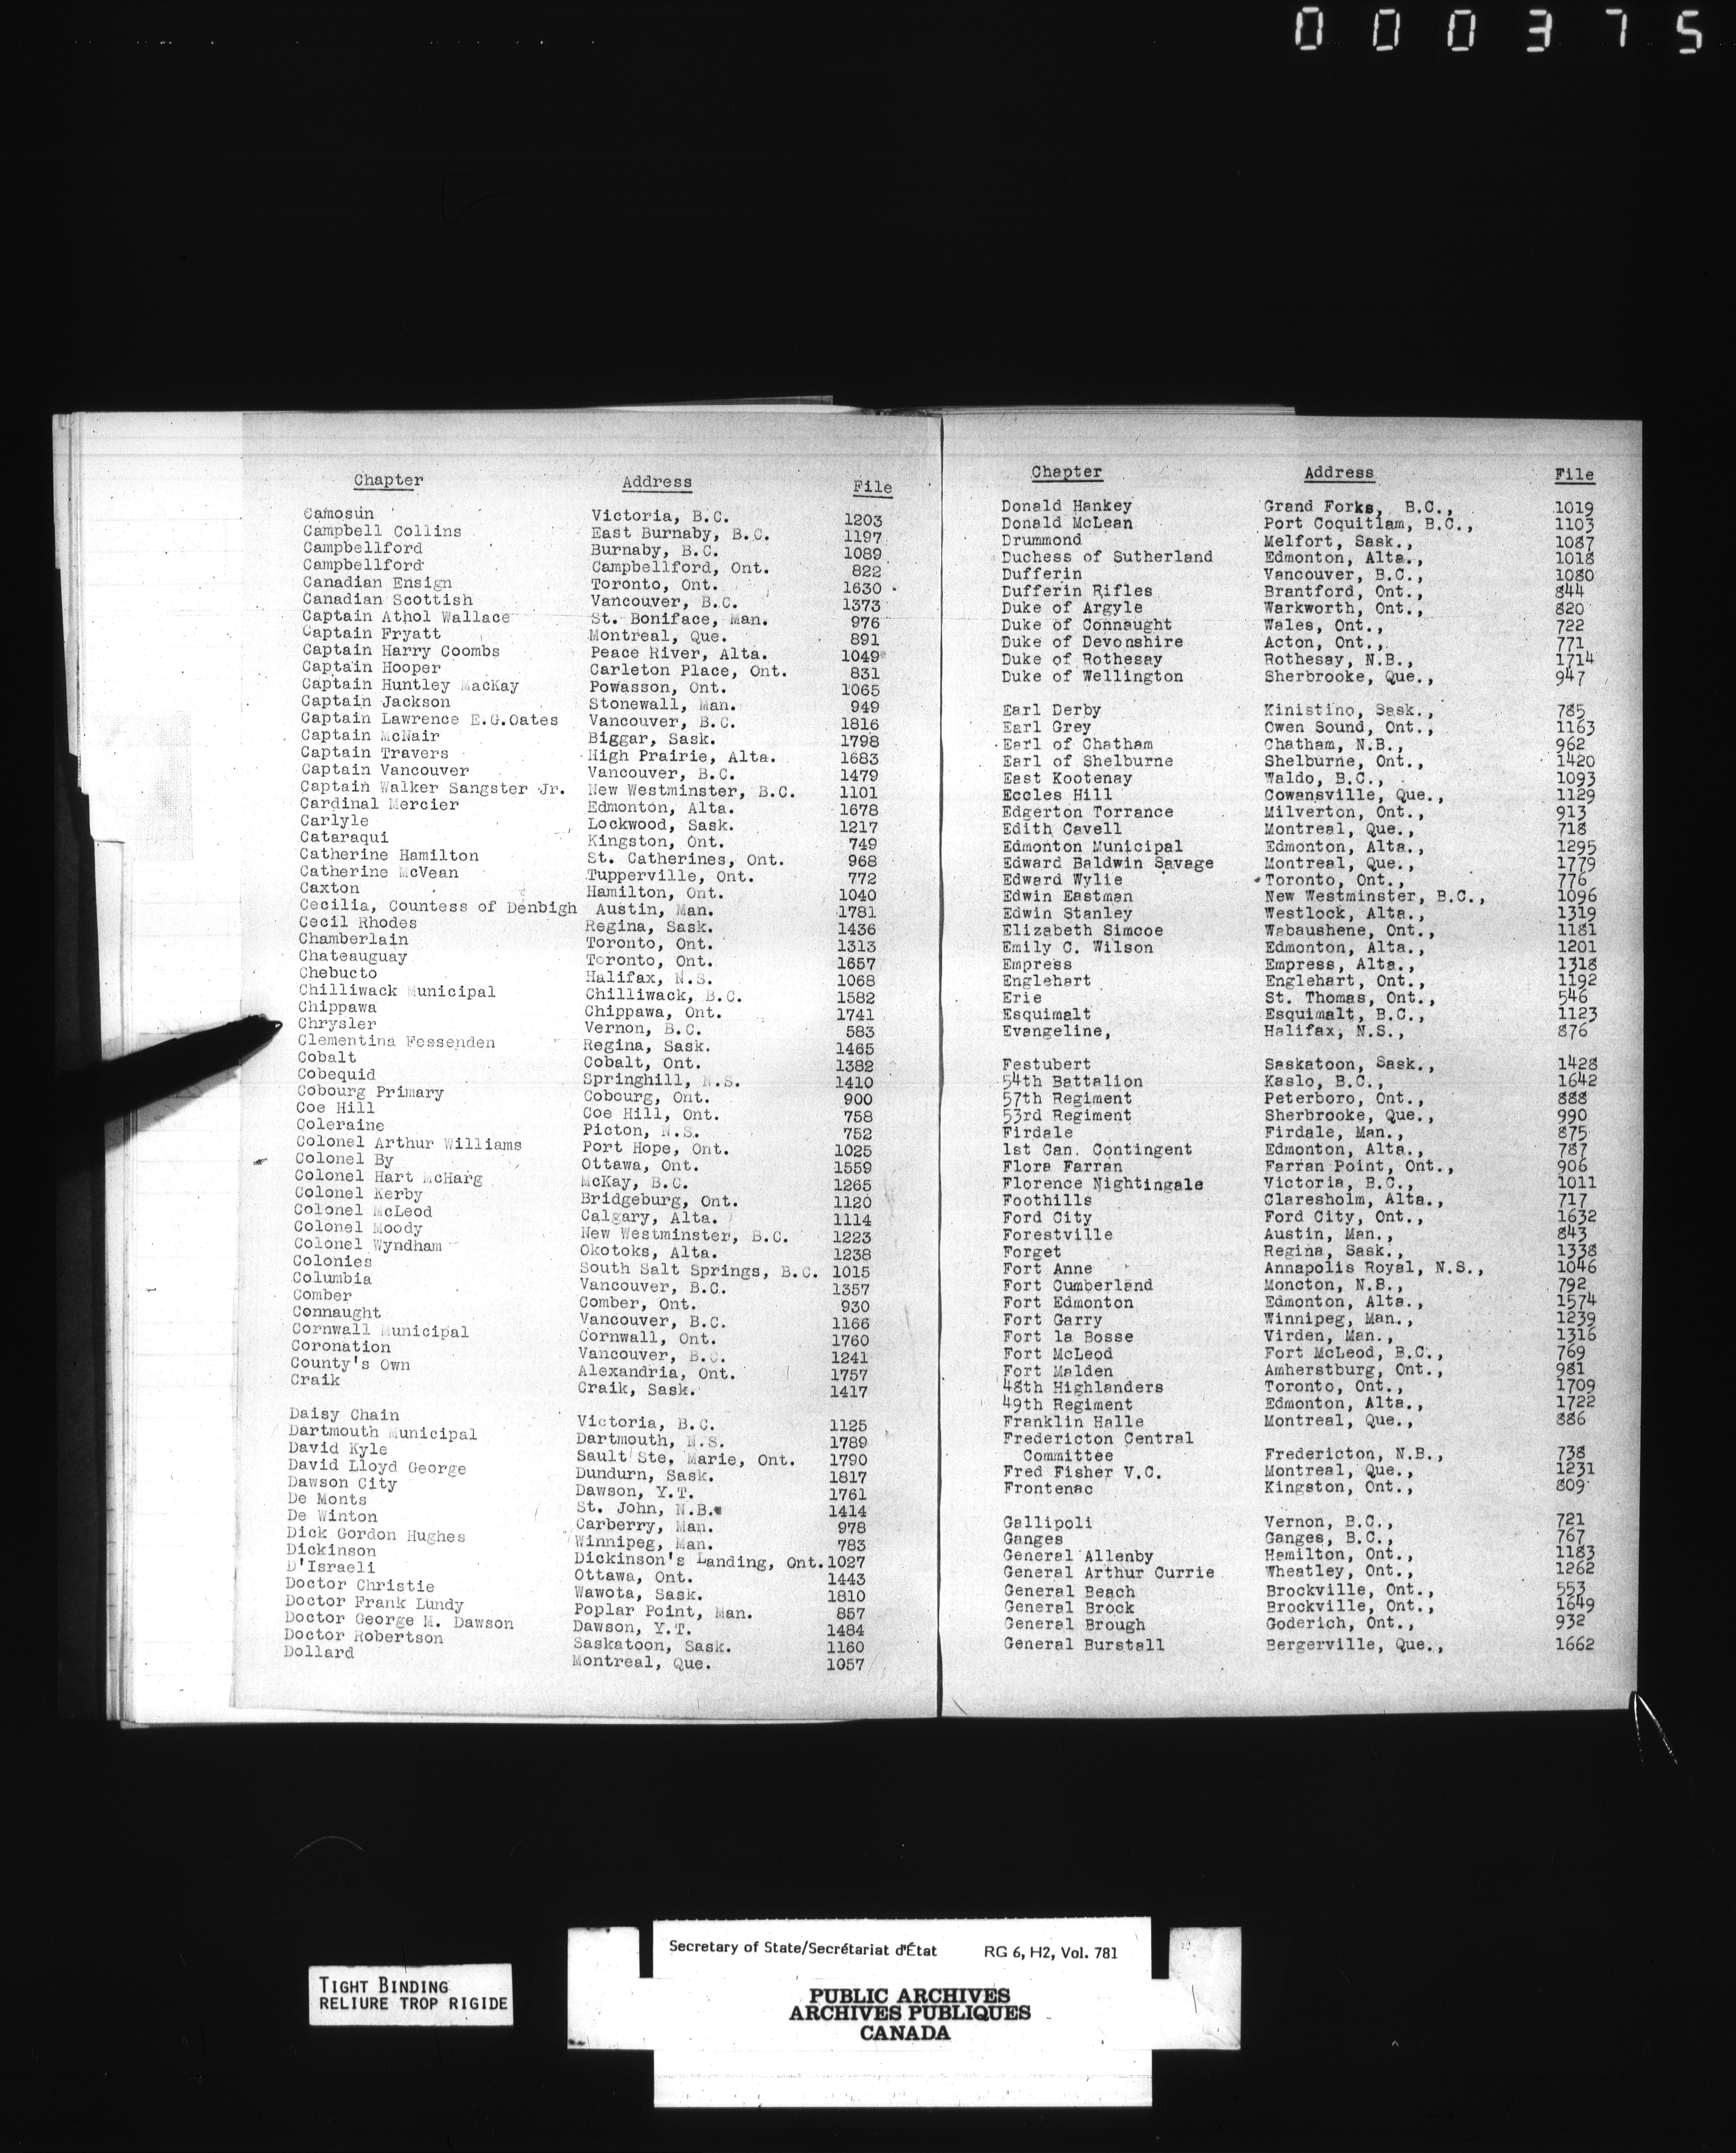 000375
Chapter Address File
Camosun Victoria, B.C. 1203
Campbell Collins East Burnaby, B.C. 1197
Campbellford Burnaby, B.C. 1089
Campbellford Campbellford, Ont. 822
Canadian Ensign Toronto, Ont. 1630
Canadian Scottish Vancouver, B.C. 1373
Captain Athol Wallace St. Boniface, Man. 976
Captain Fryatt Montreal, Que. 891
Captain Harry Coombs Peace River, Alta. 1049
Captain Hooper Carleton Place, Ont. 831
Captain Huntley MacKay Powasson, Ont. 1065
Captain Jackson Stonewall, Man. 949
Captain Lawrence E.G.Oates Vancouver, B.C. 1816
Captain McNair Biggar, Sask. 1798
Captain Travers High Prairie, Alta. 1683
Captain Vancouver Vancouver, B.C. 1479
Captain Walker Sangster Jr. New Westminster, B.C. 1101
Cardinal Mercier Edmonton, Alta. 1678
Carlyle Lockwood, Sask. 1217
Cataraqui Kingston, Ont. 749
Catherine Hamilton St. Catherines, Ont. 968
Catherine McVean Tupperville, Ont. 772
Caxton Hamilton, Ont. 1040
Cecilia, Countess of Denbigh Austin, Man. 1781
Cecil Rhodes Regina, Sask. 1436
Chamberlain Toronto, Ont. 1313
Chateauguay Toronto, Ont. 1657
Chebucto Halifax, N.S. 1068
Chilliwack Municipal Chilliwack, B.C. 1582
Chippawa Chippawa, Ont. 1741
Chrysler Vernon, B.C. 583
Clementina Fessenden Regina, Sask. 1465
Cobalt Cobalt, Ont. 1382
Cobequid Springhill, N.S. 1410
Cobourg Primary Cobourg, Ont. 900
Coe Hill Coe Hill, Ont. 758
Coleraine Picton, N.S. 752
Colonel Arthur Williams Port Hope, Ont. 1025
Colonel By Ottawa, Ont. 1559
Colonel Hart McHarg McKay, B.C. 1265
Colonel Kerby Bridgeburg, Ont. 1120
Colonel McLeod Calgary, Alta. 1114
Colonel Moody New Westminster, B.C. 1223
Colonel Wyndham Okotoks, Alta. 1238
Colonies South Salt Springs, B.C. 1015
Columbia Vancouver, B.C. 1357
Comber Comber, Ont. 930
Connaught Vancouver, B.C. 1166
Cornwall Municipal Cornwall, Ont. 1760
Coronation Vancouver, B.C. 1241
County's Own Alexandria, Ont. 1757
Craik Craik, Sask. 1417
Daisy Chain Victoria, B.C. 1125
Dartmouth Municipal Dartmouth, N.S. 1789
David Kyle Sault Ste. Marie, Ont. 1790
David Lloyd George Dundurn, Sask. 1817
Dawson City Dawson, Y.T. 1761
De Monts St. John, N.B. 1414
De Winton Carberry, Man. 978
Dick Gordon Hughes Winnipeg, Man. 783
Dickinson Dickinson's Landing, Ont. 1027
D'Israeli Ottawa, Ont. 1443
Doctor Christie Wawota, Sask. 1810
Doctor Frank Lundy Poplar Point, Man. 857
Doctor George M. Dawson Dawson, Y.T. 1484
Doctor Robertson Saskatoon, Sask. 1160
Dollard Montreal, Que. 1057
Chapter Address File
Donald Hankey Grand Forks, B.C., 1019
Donald McLean Port Coquitlam, B.C., 1103
Drummond Melfort, Sask., 1087
Duchess of Sutherland Edmonton, Alta., 1018
Dufferin Vancouver, B.C., 1080
Dufferin Rifles Brantford, Ont., 844
Duke of Argyle Warkworth, Ont., 820
Duke of Connaught Wales, Ont., 722
Duke of Devonshire Acton, Ont., 771
Duke of Rothesay Rothesay, N.B., 1714
Duke of Wellington Sherbrooke, Que., 947
Earl Derby Kinistino, Sask., 785
Earl Grey Owen Sound, Ont., 1163
Earl of Chatham Chatham, N.B., 962
Earl of Shelburne Shelburne, Ont., 1420
East Kootenay Waldo, B.C., 1093
Eccles Hill Cowansville, Que., 1129
Edgerton Torrance Milverton, Ont., 913
Edith Cavell Montreal, Que., 718
Edmonton Municipal Edmonton, Alta., 1295
Edward Baldwin Savage Montreal, Que., 1779
Edward Wylie Toronto, Ont., 776
Edwin Eastman New Westminster, B.C., 1096
Edwin Stanley Westlock, Alta., 1319
Elizabeth Simcoe Wabaushene, Ont., 1181
Emily C. Wilson Edmonton, Alta., 1201
Empress Empress, Alta., 1318
Englehart Englehart, Ont., 1192
Erie St. Thomas, Ont., 546
Esquimalt Esquimalt, B.C., 1123
Evangeline, Halifax, N.S., 876
Festubert Saskatoon, Sask., 1428
54th Battalion Kaslo, B.C., 1642
57th Regiment Peterboro, Ont., 888
53rd Regiment Sherbrooke, Que., 990
Firdale Firdale, Man., 875
1st Can. Contingent Edmonton, Alta., 787
Flora Farran Farran Point, Ont., 906
Florence Nightingale Victoria, B.C., 1011
Foothills Claresholm, Alta., 717
Ford City Ford City, Ont., 1632
Forestville Austin, Man., 843
Forget Regina, Sask., 1338
Fort Anne Annapolis Royal, N.S., 1046
Fort Cumberland Moncton, N.B., 792
Fort Edmonton Edmonton, Alta., 1574
Fort Garry Winnipeg, Man., 1239
Fort la Bosse Virden, Man., 1316
Fort McLeod Fort McLeod, B.C., 769
Fort Malden Amherstburg, Ont., 981
48th Highlanders Toronto, Ont., 1709
49th Regiment Edmonton, Alta., 1722
Franklin Halle Montreal, Que., 886
Fredericton Central
Committee Fredericton, N.B., 738
Fred Fisher V.C. Montreal, Que., 1231
Frontenac Kingston, Ont., 809
Gallipoli Vernon, B.C., 721
Ganges Ganges, B.C., 767
General Allenby Hamilton, Ont., 1183
General Arthur Currie Wheatley, Ont., 1262
General Beach Brockville, Ont., 553
General Brock Brockville, Ont., 1649
General Brough Goderich, Ont., 932
General Burstall Bergerville, Que., 1662
Secretary of State/Secrétariat d'État RG 6, H2, Vol. 781
TIGHT BINDING
RELIURE TROP RIGIDE
PUBLIC ARCHIVES
ARCHIVES PUBLIQUES
CANADA